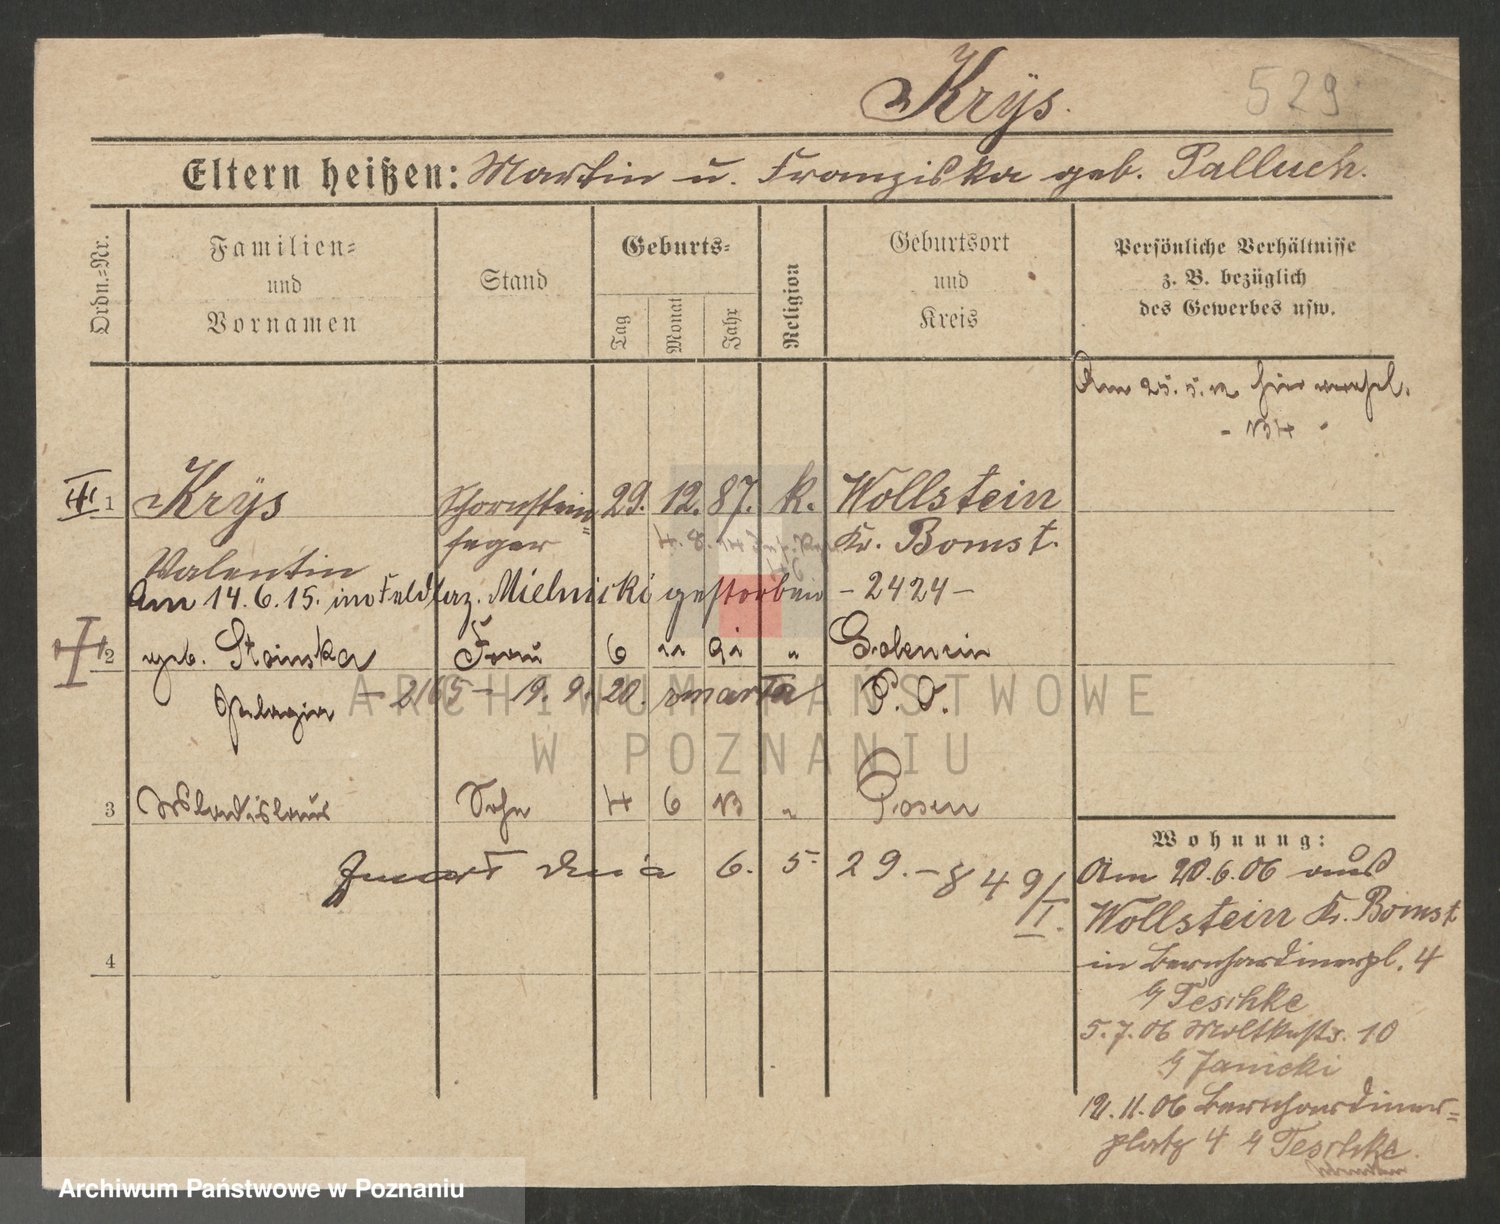 Krÿs.
529
Eltern heißen: Martin u. Franziska geb. Palluch.
Ordn.=Nr.
Familien=
und
Vornamen
Stand
Geburts=
Tag
Monat
Jahr
Religion
Geburtsort
und
Kreis
Persönliche Verhältnisse
z. B. bezüglich
des Gewerbes usw.
Am 25. 5. 12 hier
1 Krÿs Schornstein= 29. 12. 87. k. Wollstein
Valentin feger Kr. Bomst.
Am 14.6.15. im Feldlaz. Mielnicki gestorben - 2424 -
2 geb. Stoinska Frau 6 " Golencin
Pelagia - 2165 - 19. 9. 20. zmarła P. O.
ARCHIWUM PAŃSTWOWE
W POZNANIU
3 Wladislaus Sohn 4 6 13 " Posen
6. 5. 29. - 849/I.
4
Wohnung:
Am 20.6.06 aus
Wollstein Kr. Bomst
in Bernhardinerpl. 4
b/ Teschke
5.7.06 Moltkestr. 10
b/ Janicki
12.11.06 Bernhardiner=
platz 4 b/ Teschke.
Archiwum Państwowe w Poznaniu